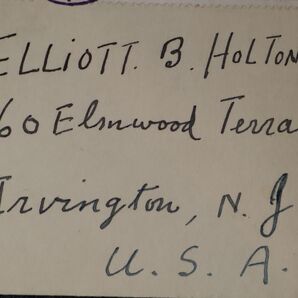 ELLIOTT. B. HOLTON
60 Elmwood Terra
Irvington, N. J
U. S. A.